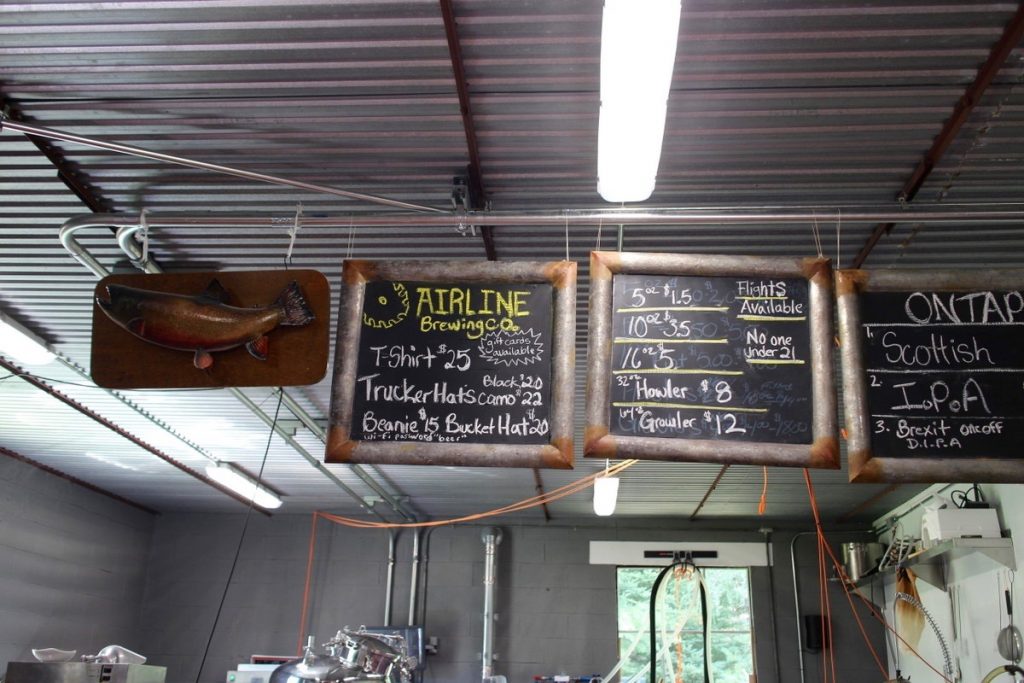 AIRLINE
Brewing Co.
gift cards
available
T-Shirt $25
Black $20
Trucker Hats camo $22
Beanie $15 Bucket Hat $20
Wi-Fi password "beer"
5oz $1.5
10oz $3.5
16oz $5
32oz Howler $8
64oz Growler $12
Flights
Available
No one
under 21
ONTAP
1. Scottish
2. I.P.A
3. Brexit on coff
D.I.P.A